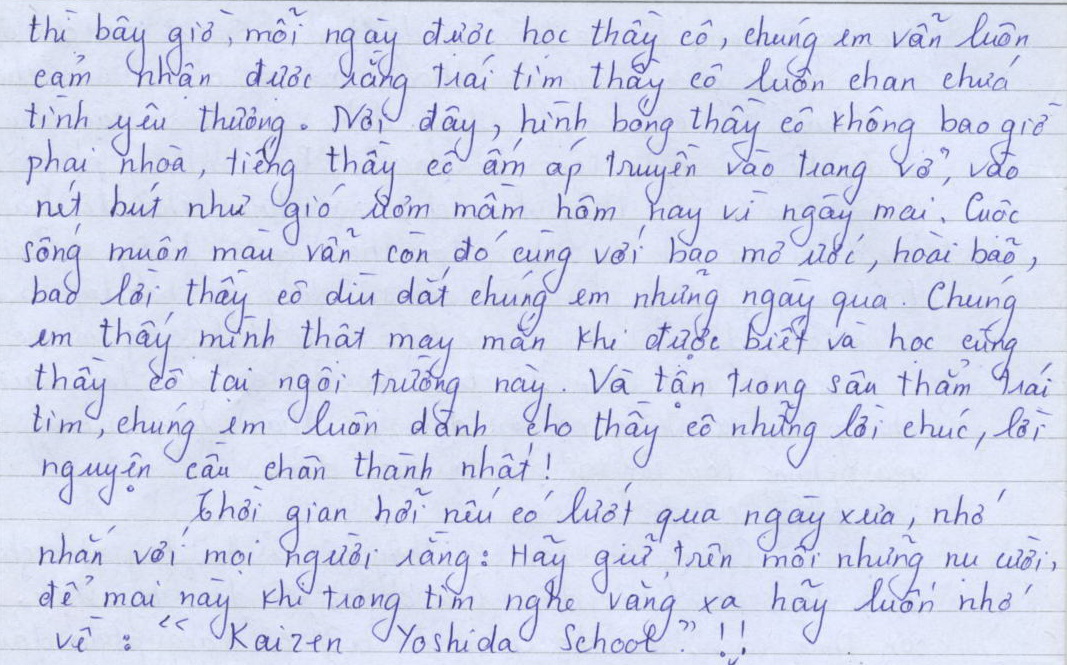 thì bây giờ, mỗi ngày được học thầy cô, chúng em vẫn luôn
cảm nhận được rằng trái tim thầy cô luôn chan chứa
tình yêu thương. Nơi đây, hình bóng thầy cô không bao giờ
phai nhoà, tiếng thầy cô ấm áp truyền vào trang vở, vào
nét bút như gió ươm mầm hôm nay vì ngày mai. Cuộc
sống muôn màu vẫn còn đó cùng với bao mơ ước, hoài bão,
bao lời thầy cô dìu dắt chúng em những ngày qua. Chúng
em thấy mình thật may mắn khi được biết và học cùng
thầy cô tại ngôi trường này. Và tận trong sâu thẳm trái
tim, chúng em luôn dành cho thầy cô những lời chúc, lời
nguyện cầu chân thành nhất!
Thời gian hỡi nếu có lướt qua ngày xưa, nhớ
nhắn với mọi người rằng: Hãy giữ trên môi những nụ cười,
để mai này khi trong tim nghe vắng xa hãy luôn nhớ
về: "Kaizen Yoshida School"!!